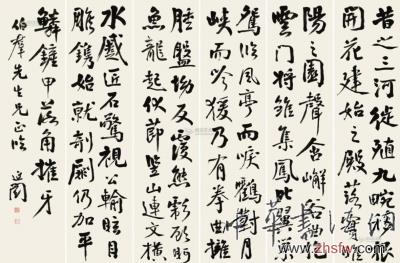 昔之三河徙殖九畹移根
開花建始之殿落實睢
陽之園聲含嶰谷曲抱
雲門將雛集鳳比翼巢
鴛臨風亭而唳鶴對月
峽而吟猿乃有拳曲擁
腫盤坳反覆熊彪顧盼
魚龍起伏節竪山連文橫
水蹙匠石驚視公輸眩目
雕鐫始就剞劂仍加平
鱗鏟甲落角摧牙
伯羣先生兄正
延闓
www.zhsfw.com